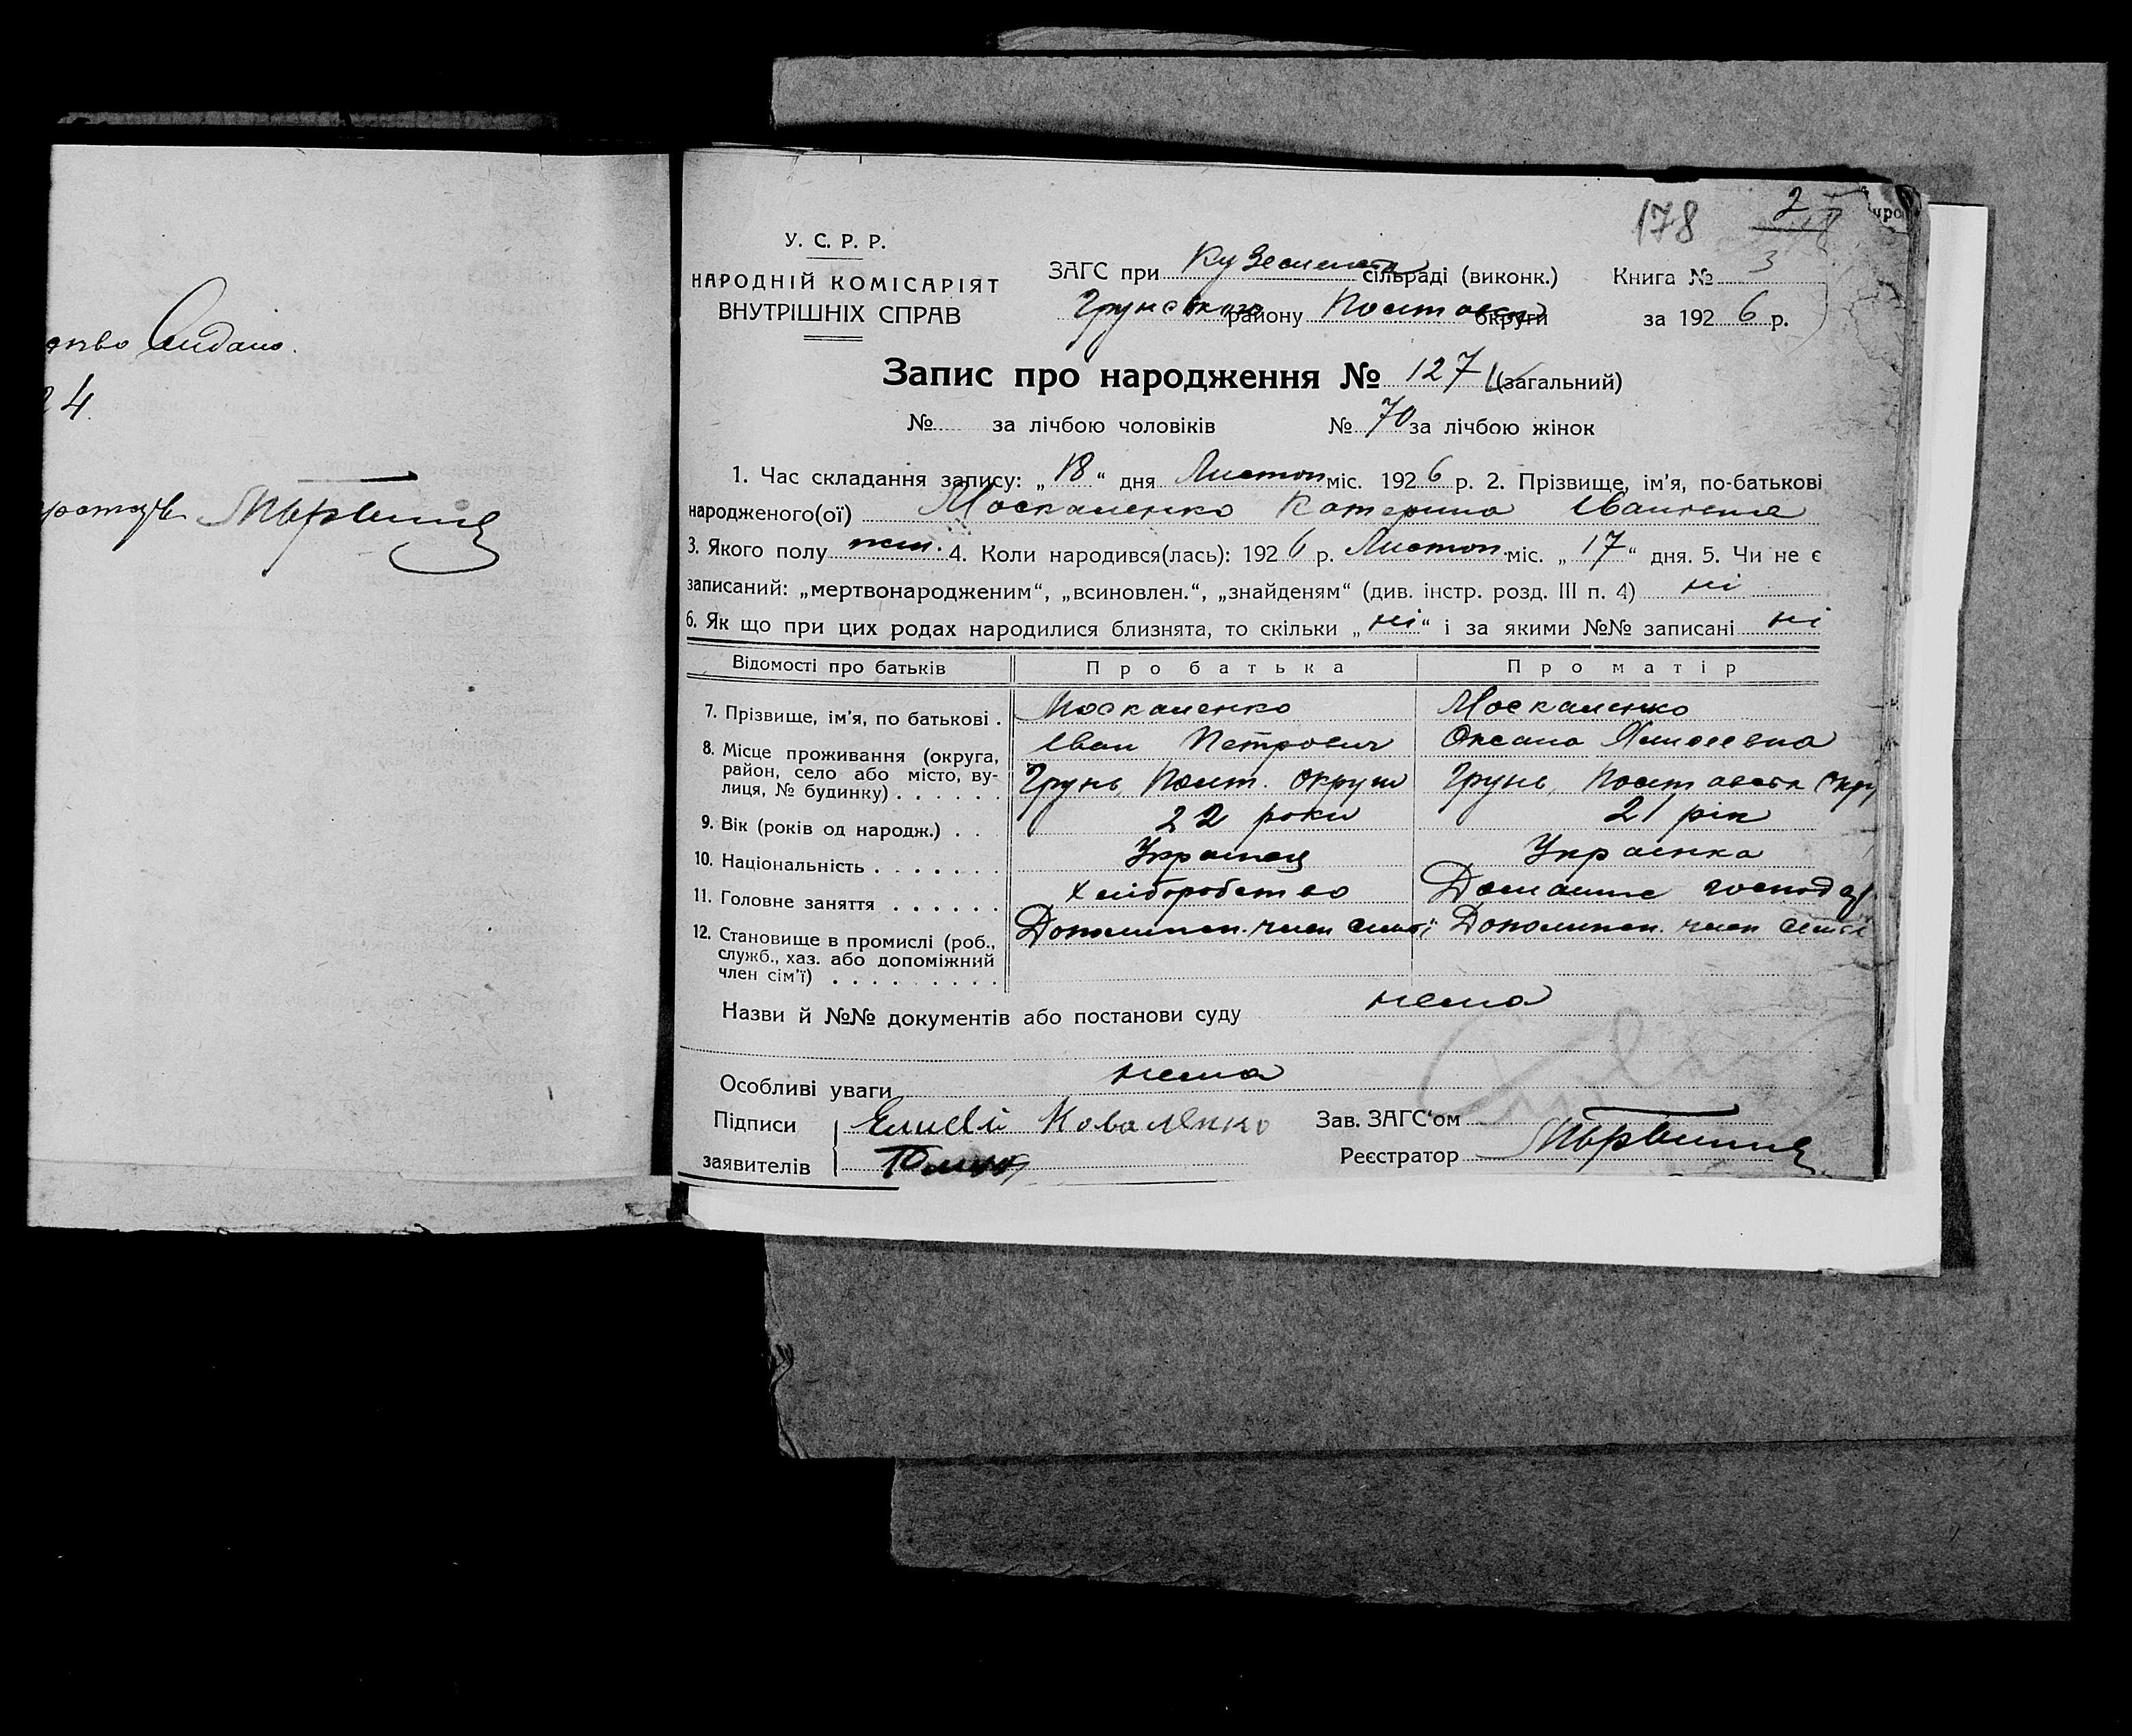 Видано.
24.
178
2
У. С. Р. Р.
НАРОДНІЙ КОМІСАРІЯТ
ВНУТРІШНІХ СПРАВ
ЗАГС при сільраді (виконк.) Книга № 3
Грунського району Полтавськ округи за 1926 р.
Запис про народження № 127 (загальний)
№ за лічбою чоловіків № 70 за лічбою жінок
1. Час складання запису: „18“ дня Листоп міс. 1926 р. 2. Прізвище, ім'я, по-батькові
народженого(ої) Москаленко Катерина Іванівна
3. Якого полу жін. 4. Коли народився(лась): 1926 р. Листоп. міс. „17“ дня. 5. Чи не є
записаний: „мертвонародженим“, „всиновлен.“, „знайденям“ (див. інстр. розд. III п. 4) ні
6. Як що при цих родах народилися близнята, то скільки „ні“ і за якими №№ записані ні
Відомості про батьків Про батька Про матір
7. Прізвище, ім'я, по батькові . Москаленко Москаленко
Іван Петрович Оксана
8. Місце проживання (округа,
район, село або місто, ву-
лиця, № будинку) . . . . . . Грунь, Полт. округи Грунь, Полтавськ окру
9. Вік (років од народж.) . . 22 роки 21 рік
10. Національність . . . . . . . Українец Українка
11. Головне заняття . . . . . . Хліборобство Домашнє господар
12. Становище в промислі (роб.,
служб., хаз. або допоміжний
член сім'ї) . . . . . . . . . Допоміжн. член сімї Допоміжн. член сімї
Назви й №№ документів або постанови суду нема
Особливі уваги нема
Підписи Елисей Коваленко Зав. ЗАГС'ом
заявителів Реєстратор